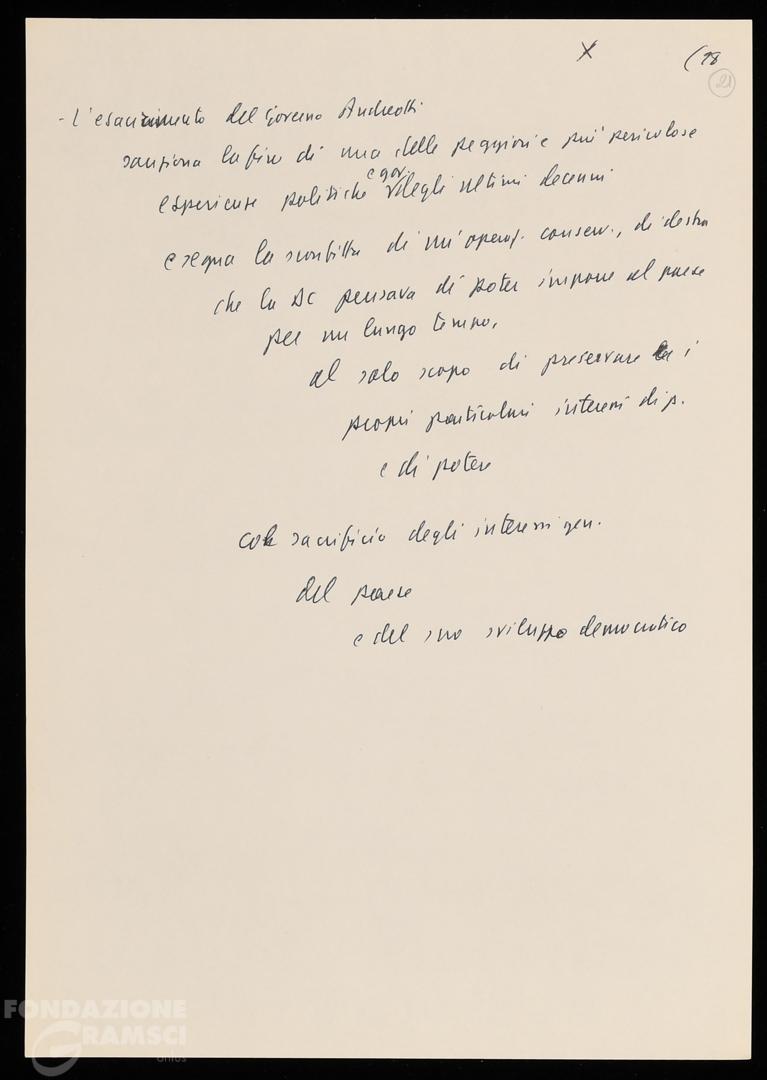 X (18
21
- L'esaurimento del Governo Andreotti
sanziona la fine di una delle peggiori e più pericolose
e gov.
esperienze politiche degli ultimi decenni
e segna la sconfitta di un'operaz. conserv., di destra
che la DC pensava di poter imporre al paese
per un lungo tempo,
al solo scopo di preservare i
propri particolari interessi di p.
e di potere
col sacrificio degli interessi gen.
del paese
e del suo sviluppo democratico
FONDAZIONE
GRAMSCI
onlus